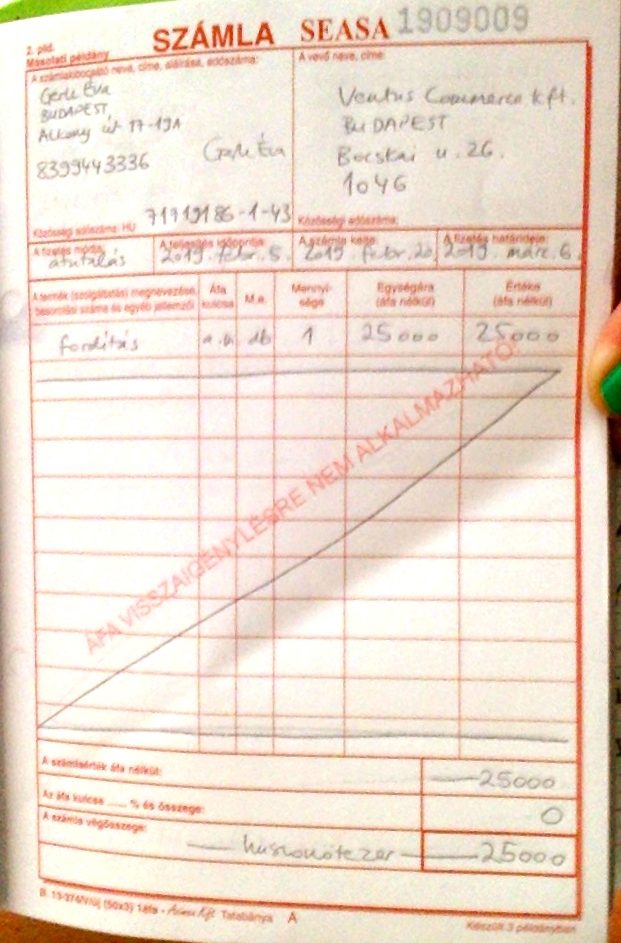 2. pld.
Másolati példány
SZÁMLA SEASA 1909009
A számlakibocsátó neve, címe, aláírása, adószáma:
Gerle Éva
BUDAPEST,
Alkony út 17-19A
8399443336
Gerle Éva
71719186-1-43
Közösségi adószáma: HU
A vevő neve, címe:
Ventus Commerce kft.
BUDAPEST
Bocskai u. 26.
1046
Közösségi adószáma:
A fizetés módja: átutalás
A teljesítés időpontja: 2019. febr. 5.
A számla kelte: 2019 febr. 20.
A fizetés határideje: 2019. márc. 6.
A termék (szolgáltatás) megnevezése, besorolási száma és egyéb jellemzői
Áfa kulcsa
M.e.
Mennyi-
sége
Egységára
(áfa nélkül)
Értéke
(áfa nélkül)
fordítás a.m db 1 25000 25000
ÁFA VISSZAIGÉNYLÉSRE NEM ALKALMAZHATÓ!
A számlaérték áfa nélkül: 25000
Az áfa kulcsa ...... % és összege: 0
A számla végösszege: huszonötezer 25000
B. 13-374/V/új (50x3) 1áfa - Kft. Tatabánya A
Készült 3 példányban